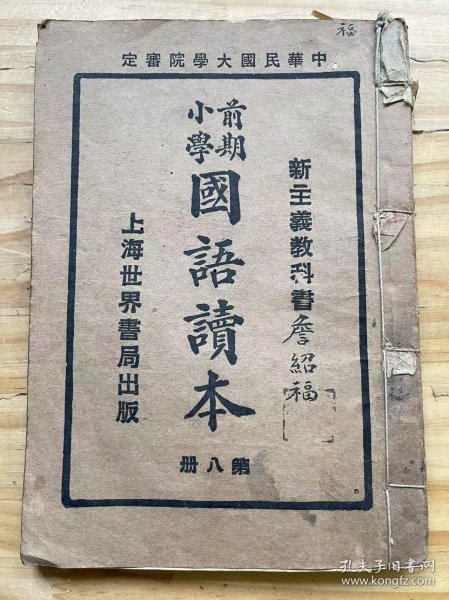 福
中華民國大學院審定
新主義教科書
詹紹福
前期
小學
國語讀本
第八册
上海世界書局出版
孔夫子旧书网
www.kongfz.com